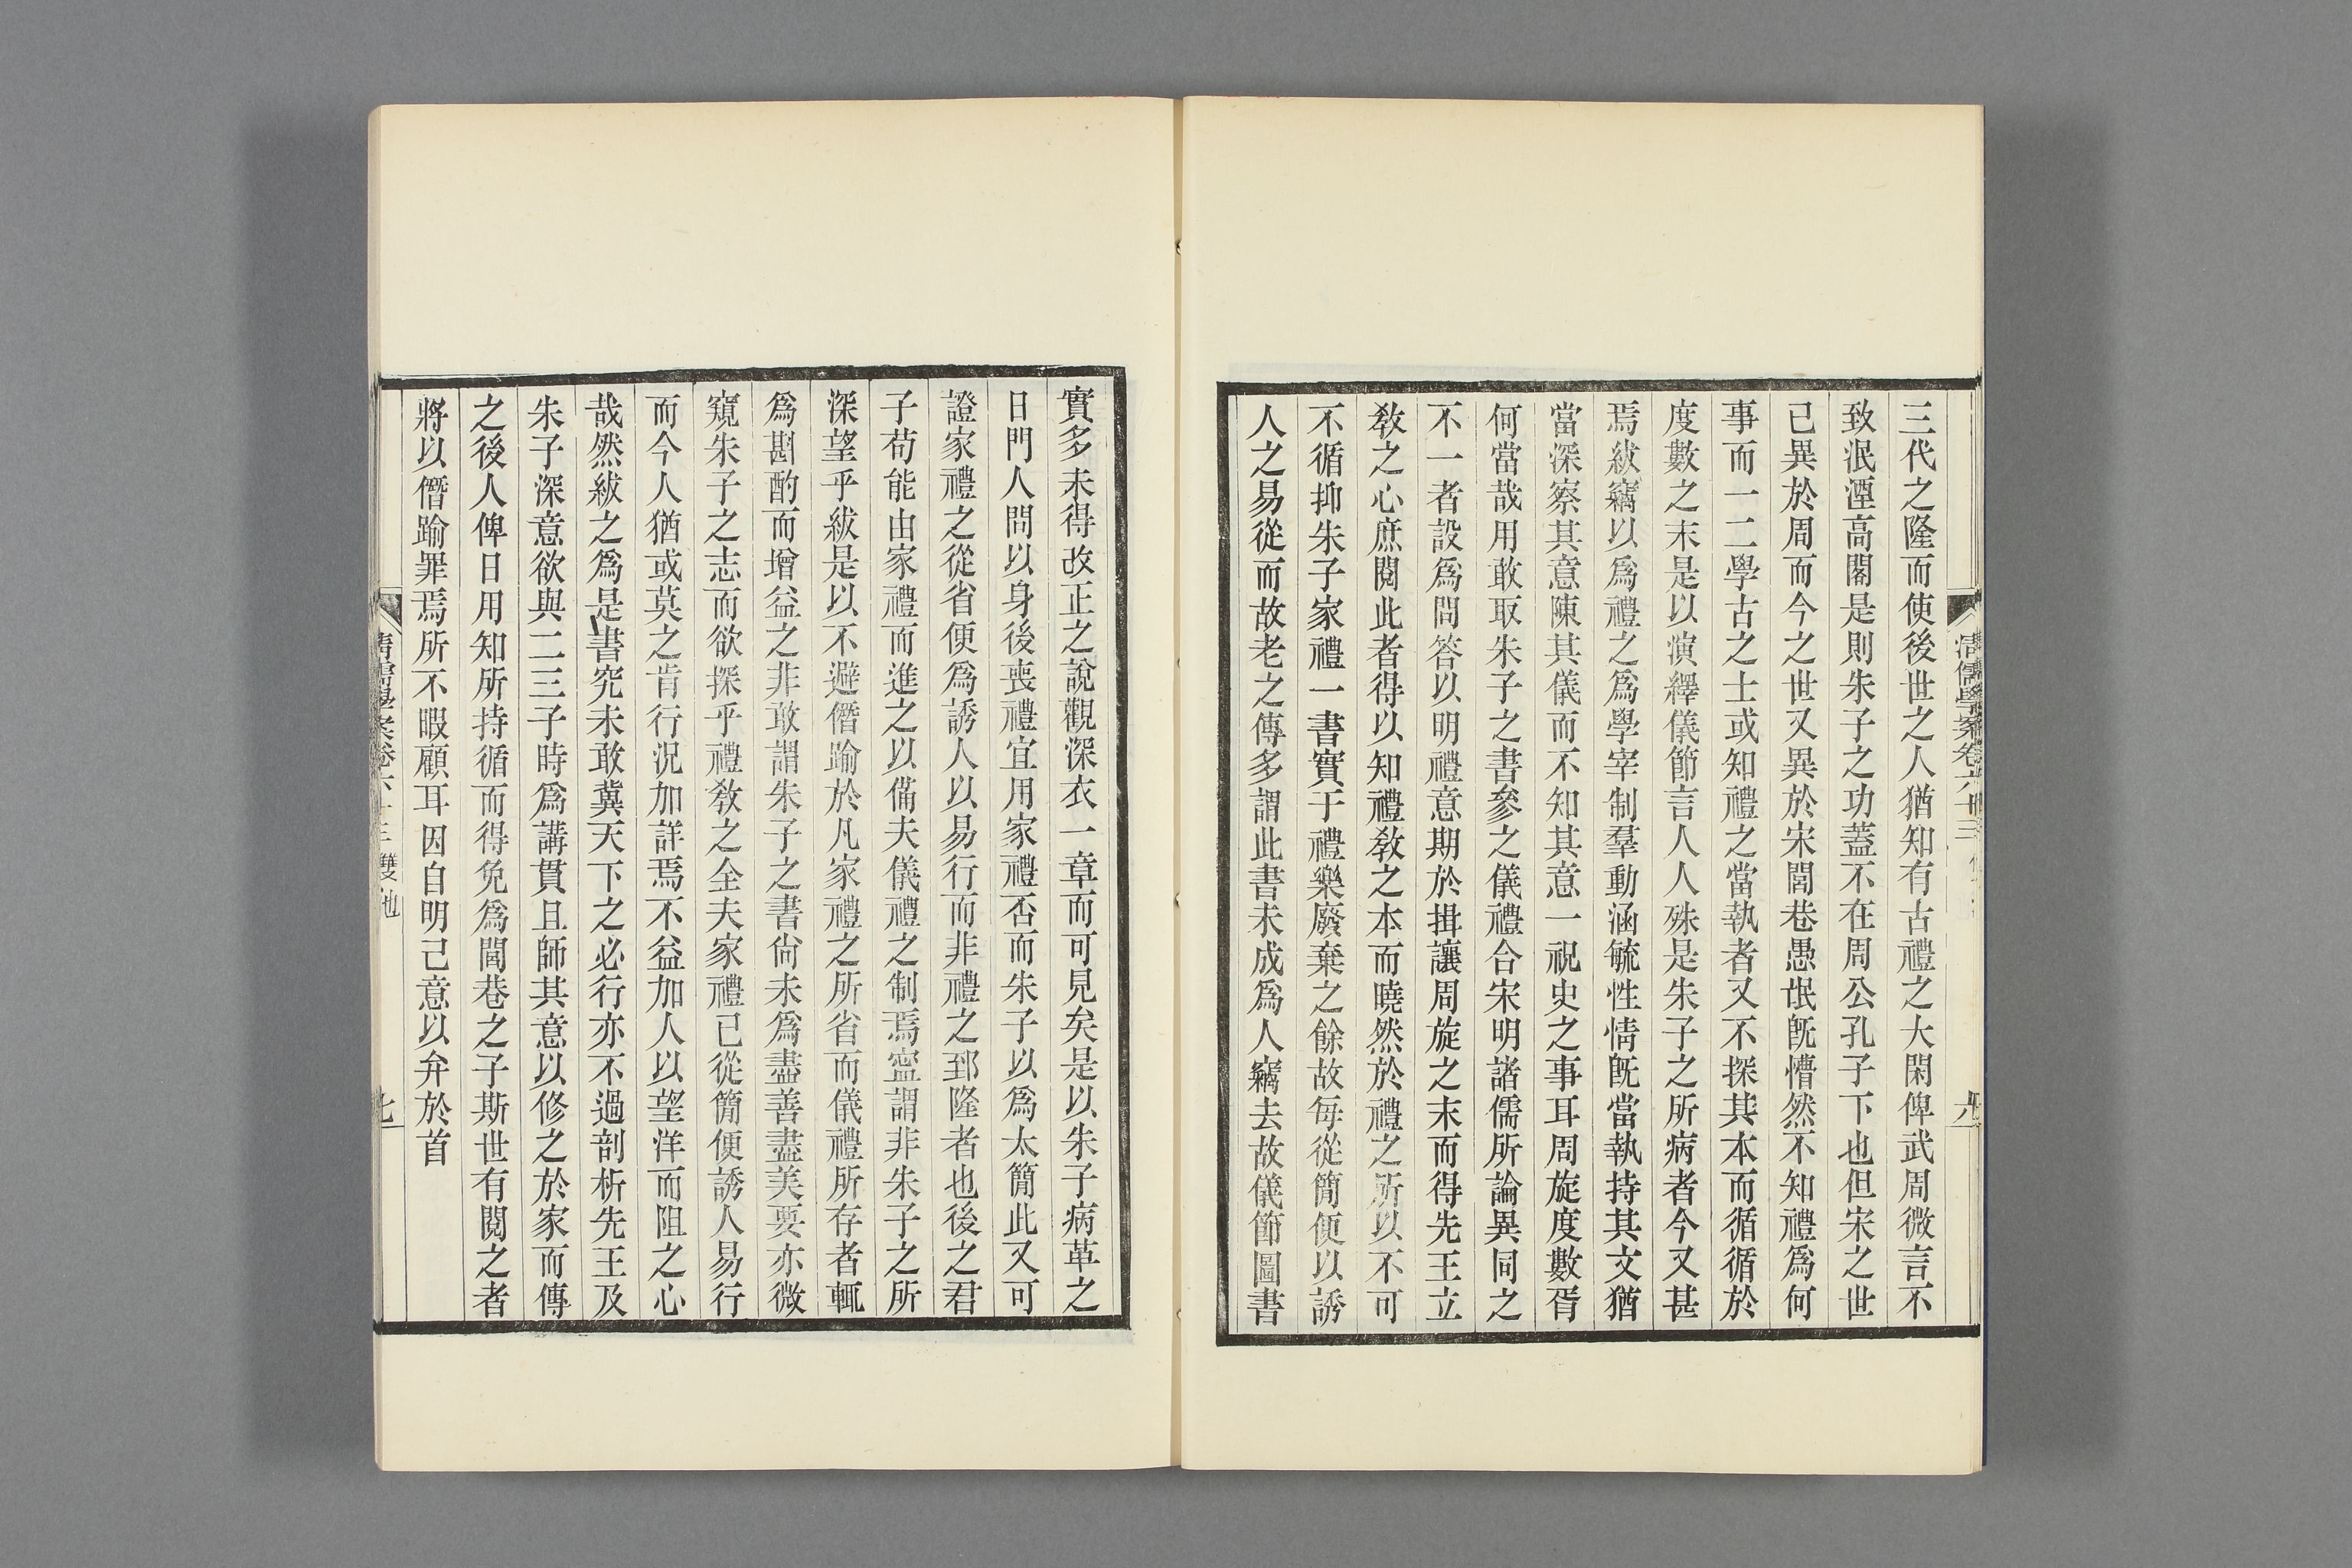 三代之隆而使後世之人猶知有古禮之大閑俾武周微言不
致泯湮高閣是則朱子之功蓋不在周公孔子下也但宋之世
已異於周而今之世又異於宋閭巷愚氓旣懵然不知禮爲何
事而一二學古之士或知禮之當執者又不探其本而循循於
度數之末是以演繹儀節言人人殊是朱子之所病者今又甚
焉紱竊以爲禮之爲學宰制羣動涵毓性情旣當執持其文猶
當深察其意陳其儀而不知其意一祝史之事耳周旋度數胥
何當哉用敢取朱子之書參之儀禮合宋明諸儒所論異同之
不一者設爲問答以明禮意期於揖讓周旋之末而得先王立
敎之心庶閱此者得以知禮敎之本而曉然於禮之所以不可
不循抑朱子家禮一書實于禮樂廢棄之餘故每從簡便以誘
人之易從而故老之傳多謂此書未成爲人竊去故儀節圖書
實多未得改正之說觀深衣一章而可見矣是以朱子病革之
日門人問以身後喪禮宜用家禮否而朱子以爲太簡此又可
證家禮之從省便爲誘人以易行而非禮之郅隆者也後之君
子苟能由家禮而進之以備夫儀禮之制焉寍謂非朱子之所
深望乎紱是以不避僭踰於凡家禮之所省而儀禮所存者輒
爲斟酌而增益之非敢謂朱子之書尙未爲盡善盡美要亦微
窺朱子之志而欲探乎禮敎之全夫家禮已從簡便誘人易行
而今人猶或莫之肯行況加詳焉不益加人以望洋而阻之心
哉然紱之爲是書究未敢冀天下之必行亦不過剖析先王及
朱子深意欲與二三子時爲講貫且師其意以修之於家而傳
之後人俾日用知所持循而得免爲閭巷之子斯世有閱之者
將以僭踰罪焉所不暇顧耳因自明己意以弁於首
清儒學案卷六十三 雙池
七